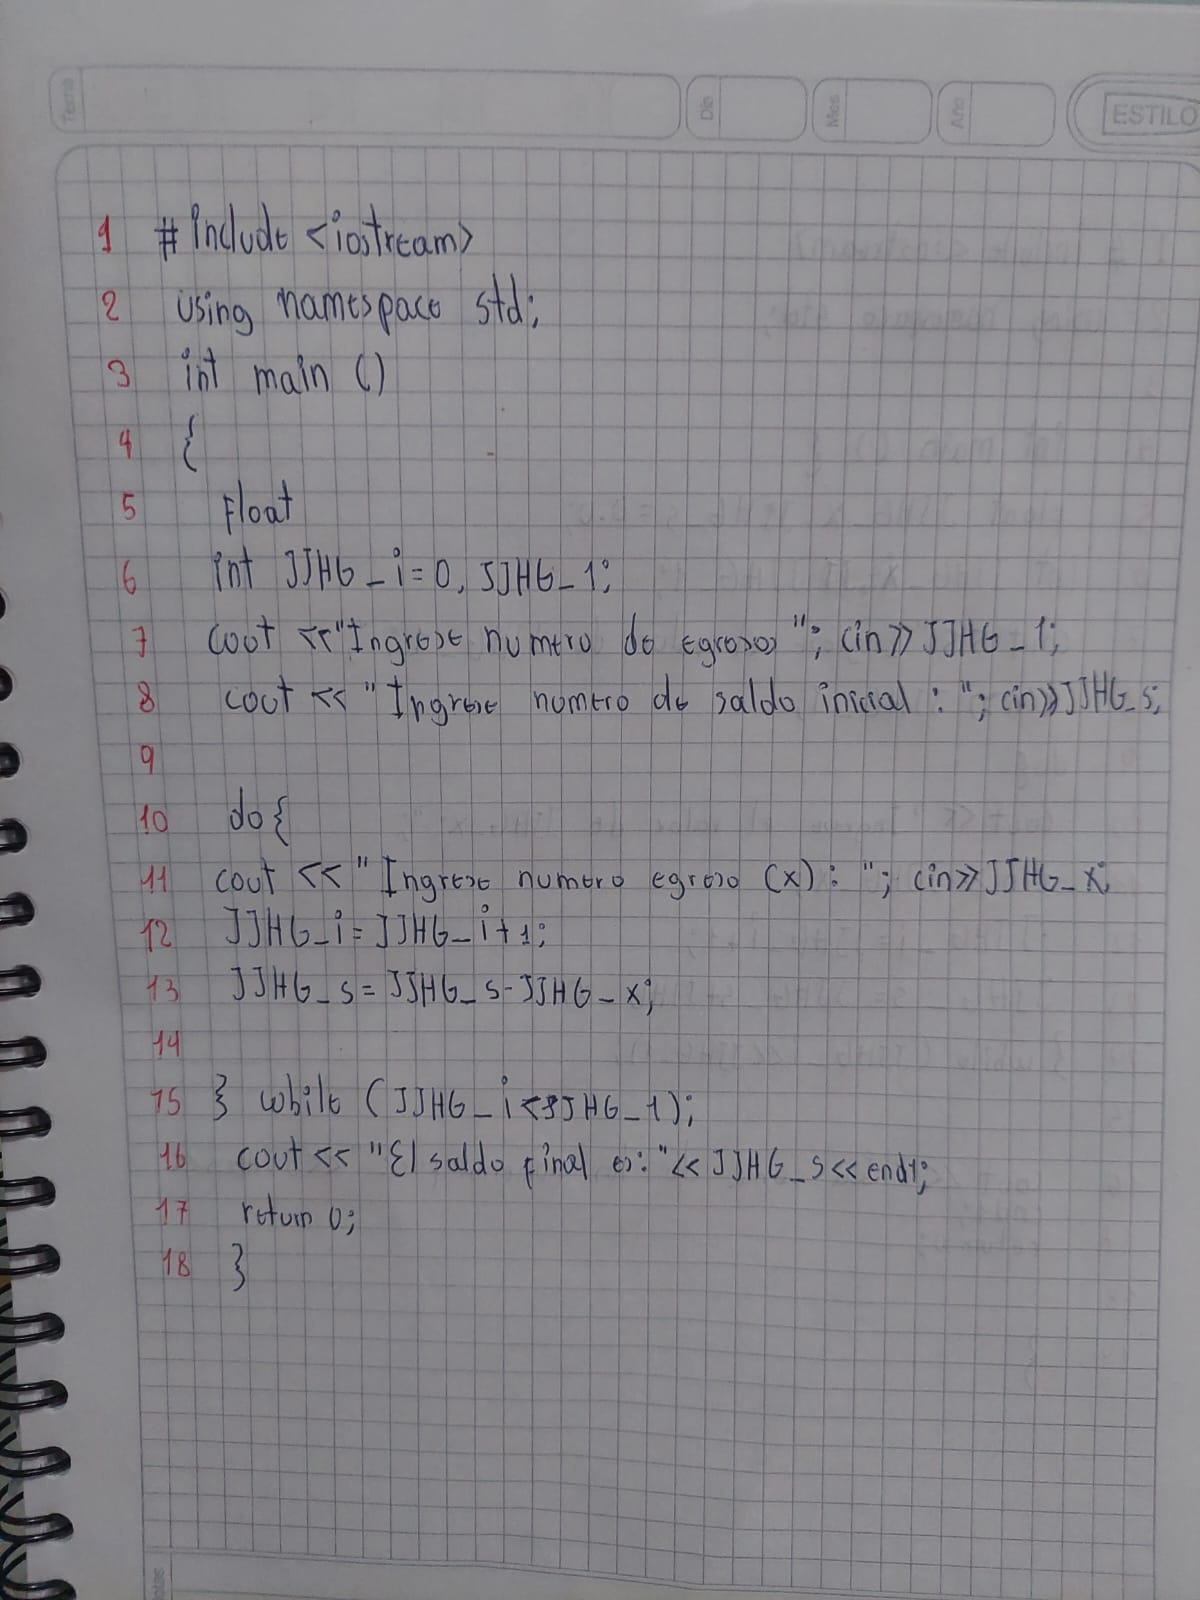 Tema Día Mes Año ESTILO
1 # include <iostream>
2 using namespace std;
3 int main ()
4 {
5 Float
6 int JJHG_i=0, JJHG_1;
7 cout <<"Ingrese numero de egresos "; cin>>JJHG_1;
8 cout << "Ingrese numero de saldo inicial : "; cin>>JJHG_s;
9
10 do{
11 cout <<" Ingrese numero egreso (x) : "; cin>>JJHG_x;
12 JJHG_i= JJHG_i+1;
13 JJHG_s= JJHG_s-JJHG_x;
14
15 } while (JJHG_i<JJHG_1);
16 cout << "El saldo final es: "<< JJHG_s<< endl;
17 return 0;
18 }